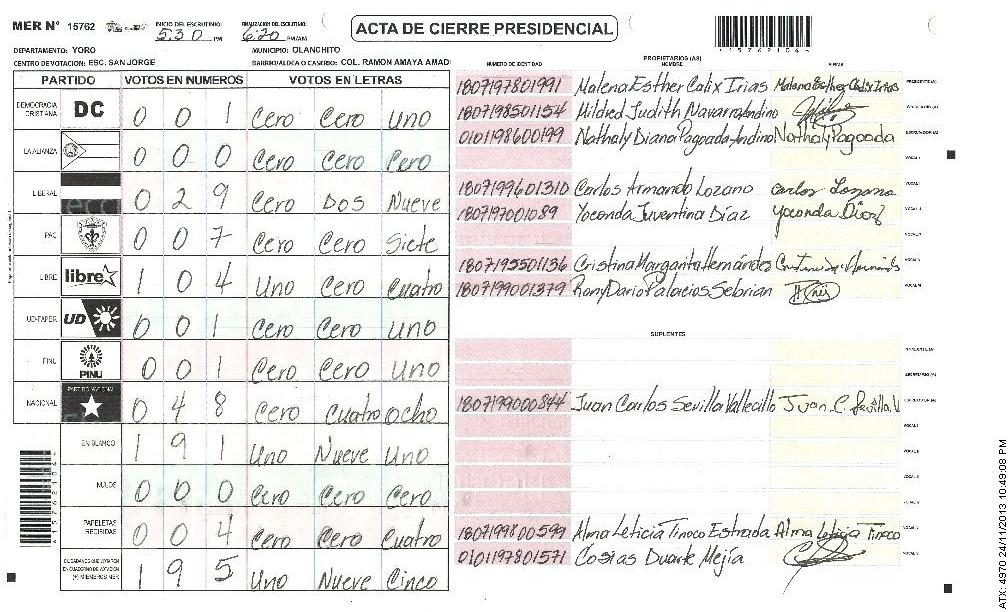 MER N° 15762 INICIO DEL ESCRUTINIO: 5:30 PM FINALIZACION DEL ESCRUTINIO: 6:20 PM/AM ACTA DE CIERRE PRESIDENCIAL
DEPARTAMENTO: YORO MUNICIPIO: OLANCHITO
CENTRO DE VOTACION: ESC. SAN JORGE BARRIO/ALDEA O CASERIO: COL. RAMON AMAYA AMAD
PARTIDO VOTOS EN NUMEROS VOTOS EN LETRAS
DEMOCRACIA CRISTIANA DC 0 0 1 Cero Cero Uno
LA ALIANZA 0 0 0 Cero Cero Cero
LIBERAL 0 2 9 Cero Dos Nueve
PAC 0 0 7 Cero Cero Siete
LIBRE libre 1 0 4 Uno Cero Cuatro
UD-FAPER UD 0 0 1 Cero Cero Uno
PINU PINU 0 0 1 Cero Cero Uno
NACIONAL PARTIDO NACIONAL 0 4 8 Cero Cuatro Ocho
EN BLANCO 1 9 1 Uno Nueve Uno
NULOS 0 0 0 Cero Cero Cero
PAPELETAS RECIBIDAS 0 0 4 Cero Cero Cuatro
CIUDADANOS QUE VOTARON EN CUADERNO DE VOTACION (+) MIEMBROS MER 1 9 5 Uno Nueve Cinco
PROPIETARIOS (AS)
NUMERO DE IDENTIDAD NOMBRE FIRMA
1807197801991 Malena Esther Calix Irias Malena Esther Calix Irias PRESIDENTE (A)
1807198501154 Mildred Judith Navarro Andino SECRETARIO (A)
0101198600199 Nathaly Diana Pagoada Andino Nathaly Pagoada ESCRUTADOR (A)
VOCAL I
1807199601310 Carlos Armando Lozano Carlos Lozano
1807197001089 Yoconda Juventina Díaz Yoconda Diaz
1807195501136 Cristina Margarita Hernándes
1807199001379 Rony Dario Palacios Sebrian
SUPLENTES
PRESIDENTE (A)
SECRETARIO (A)
1807199000844 Juan Carlos Sevilla Vallecillo Juan C. Sevilla. V ESCRUTADOR (A)
1807199800599 Alma Leticia Tinoco Estrada Alma Leticia Tinoco
0101197801571 Cosias Duarte Mejía
4157621046
ATX: 4970 24/11/2013 10:49:08 PM